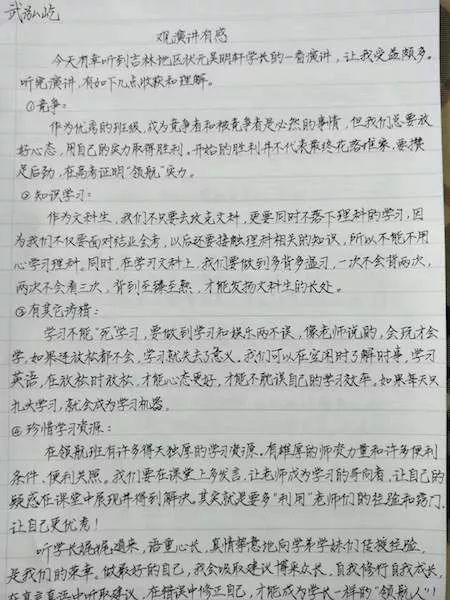 武泓屹
观演讲有感
今天有幸听到吉林地区状元吴明轩学长的一番演讲，让我受益颇多。
听完演讲，有如下几点收获和理解。
①竞争：
作为优秀的班级，成为竞争者和被竞争者是必然的事情，但我们总要放
好心态，用自己的实力取得胜利。开始的胜利并不代表最终花落谁家，要攒
足后劲，在高考证明“领航”实力。
②知识学习：
作为文科生，我们不只要去攻克文科，更要同时不落下理科的学习，因
为我们不仅要面对结业会考，以后还要接触理科相关的知识，所以不能不用
心学习理科。同时，在学习文科上，我们要做到多背多温习，一次不会背两次，
两次不会看三次，背到至臻至熟，才能发扬文科生的长处。
③有其它涉猎：
学习不能“死”学习，要做到学习和娱乐两不误，像老师说的，会玩才会
学，如果连放松都不会，学习就失去了意义，我们可以在空闲时了解时事，学习
英语，在放松时放松，才能心态更好，才能不耽误自己的学习效率。如果每天只
扎头学习，就会成为学习机器。
④珍惜学习资源：
在领航班有许多得天独厚的学习资源，有雄厚的师资力量和许多便利
条件，便利关照。我们要在课堂上多发言，让老师成为学习的导向者，让自己的
疑惑在课堂中展现并得到解决。其实就是要多“利用”老师们的经验和窍门，
让自己更优秀！
听学长娓娓道来，语重心长，真情实意地向学弟学妹们传授经验，
是我们的荣幸。做最好的自己，我会吸取建议博采众长，自我修行自我成长，
在真言真语中听取建议，在错误中修正自己，才能成为学长一样的“领航人”！